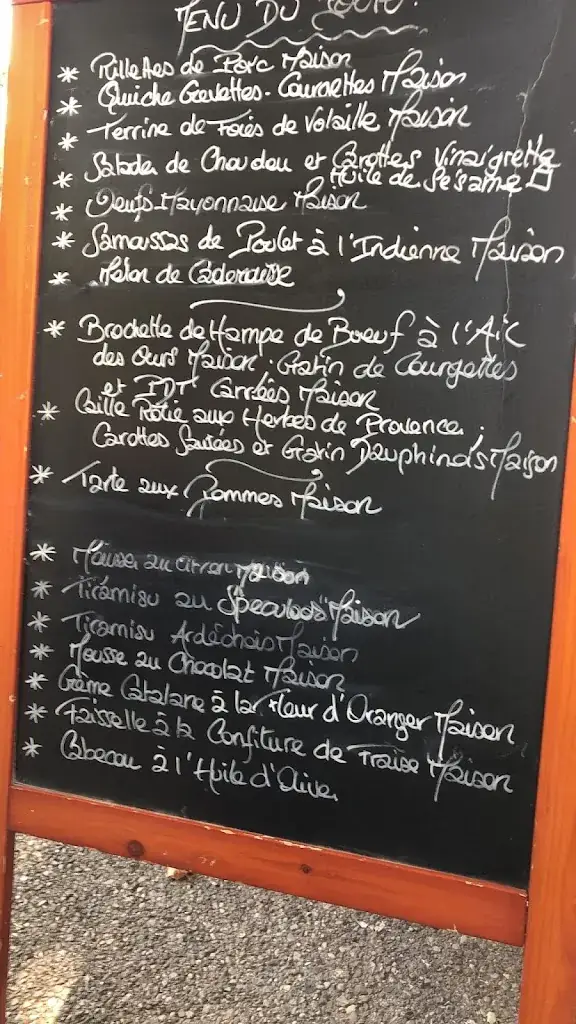 MENU DU JOUR.
* Rillettes de Porc Maison
* Quiche Crevettes-Courgettes Maison
* Terrine de Foies de Volaille Maison
* Salade de Chou et Carottes Vinaigrette
Huile de Sésame
* Oeufs-Mayonnaise Maison
* Samossas de Poulet à l'Indienne Maison
* Melon de
* Brochette de Hampe de Boeuf à l'Ail
des Ours Maison. Gratin de Courgettes
et PDT Maison
* Caille Rôtie aux Herbes de Provence.
Carottes Sautées et Gratin Dauphinois Maison
* Tarte aux Pommes Maison
* Mousse au Citron Maison
* Tiramisu au Speculoos Maison
* Tiramisu Ardéchois Maison
* Mousse au Chocolat Maison
* Crème Catalane à la Fleur d'Oranger Maison
* Faisselle à la Confiture de Fraise Maison
* Cabecou à l'Huile d'Olive.